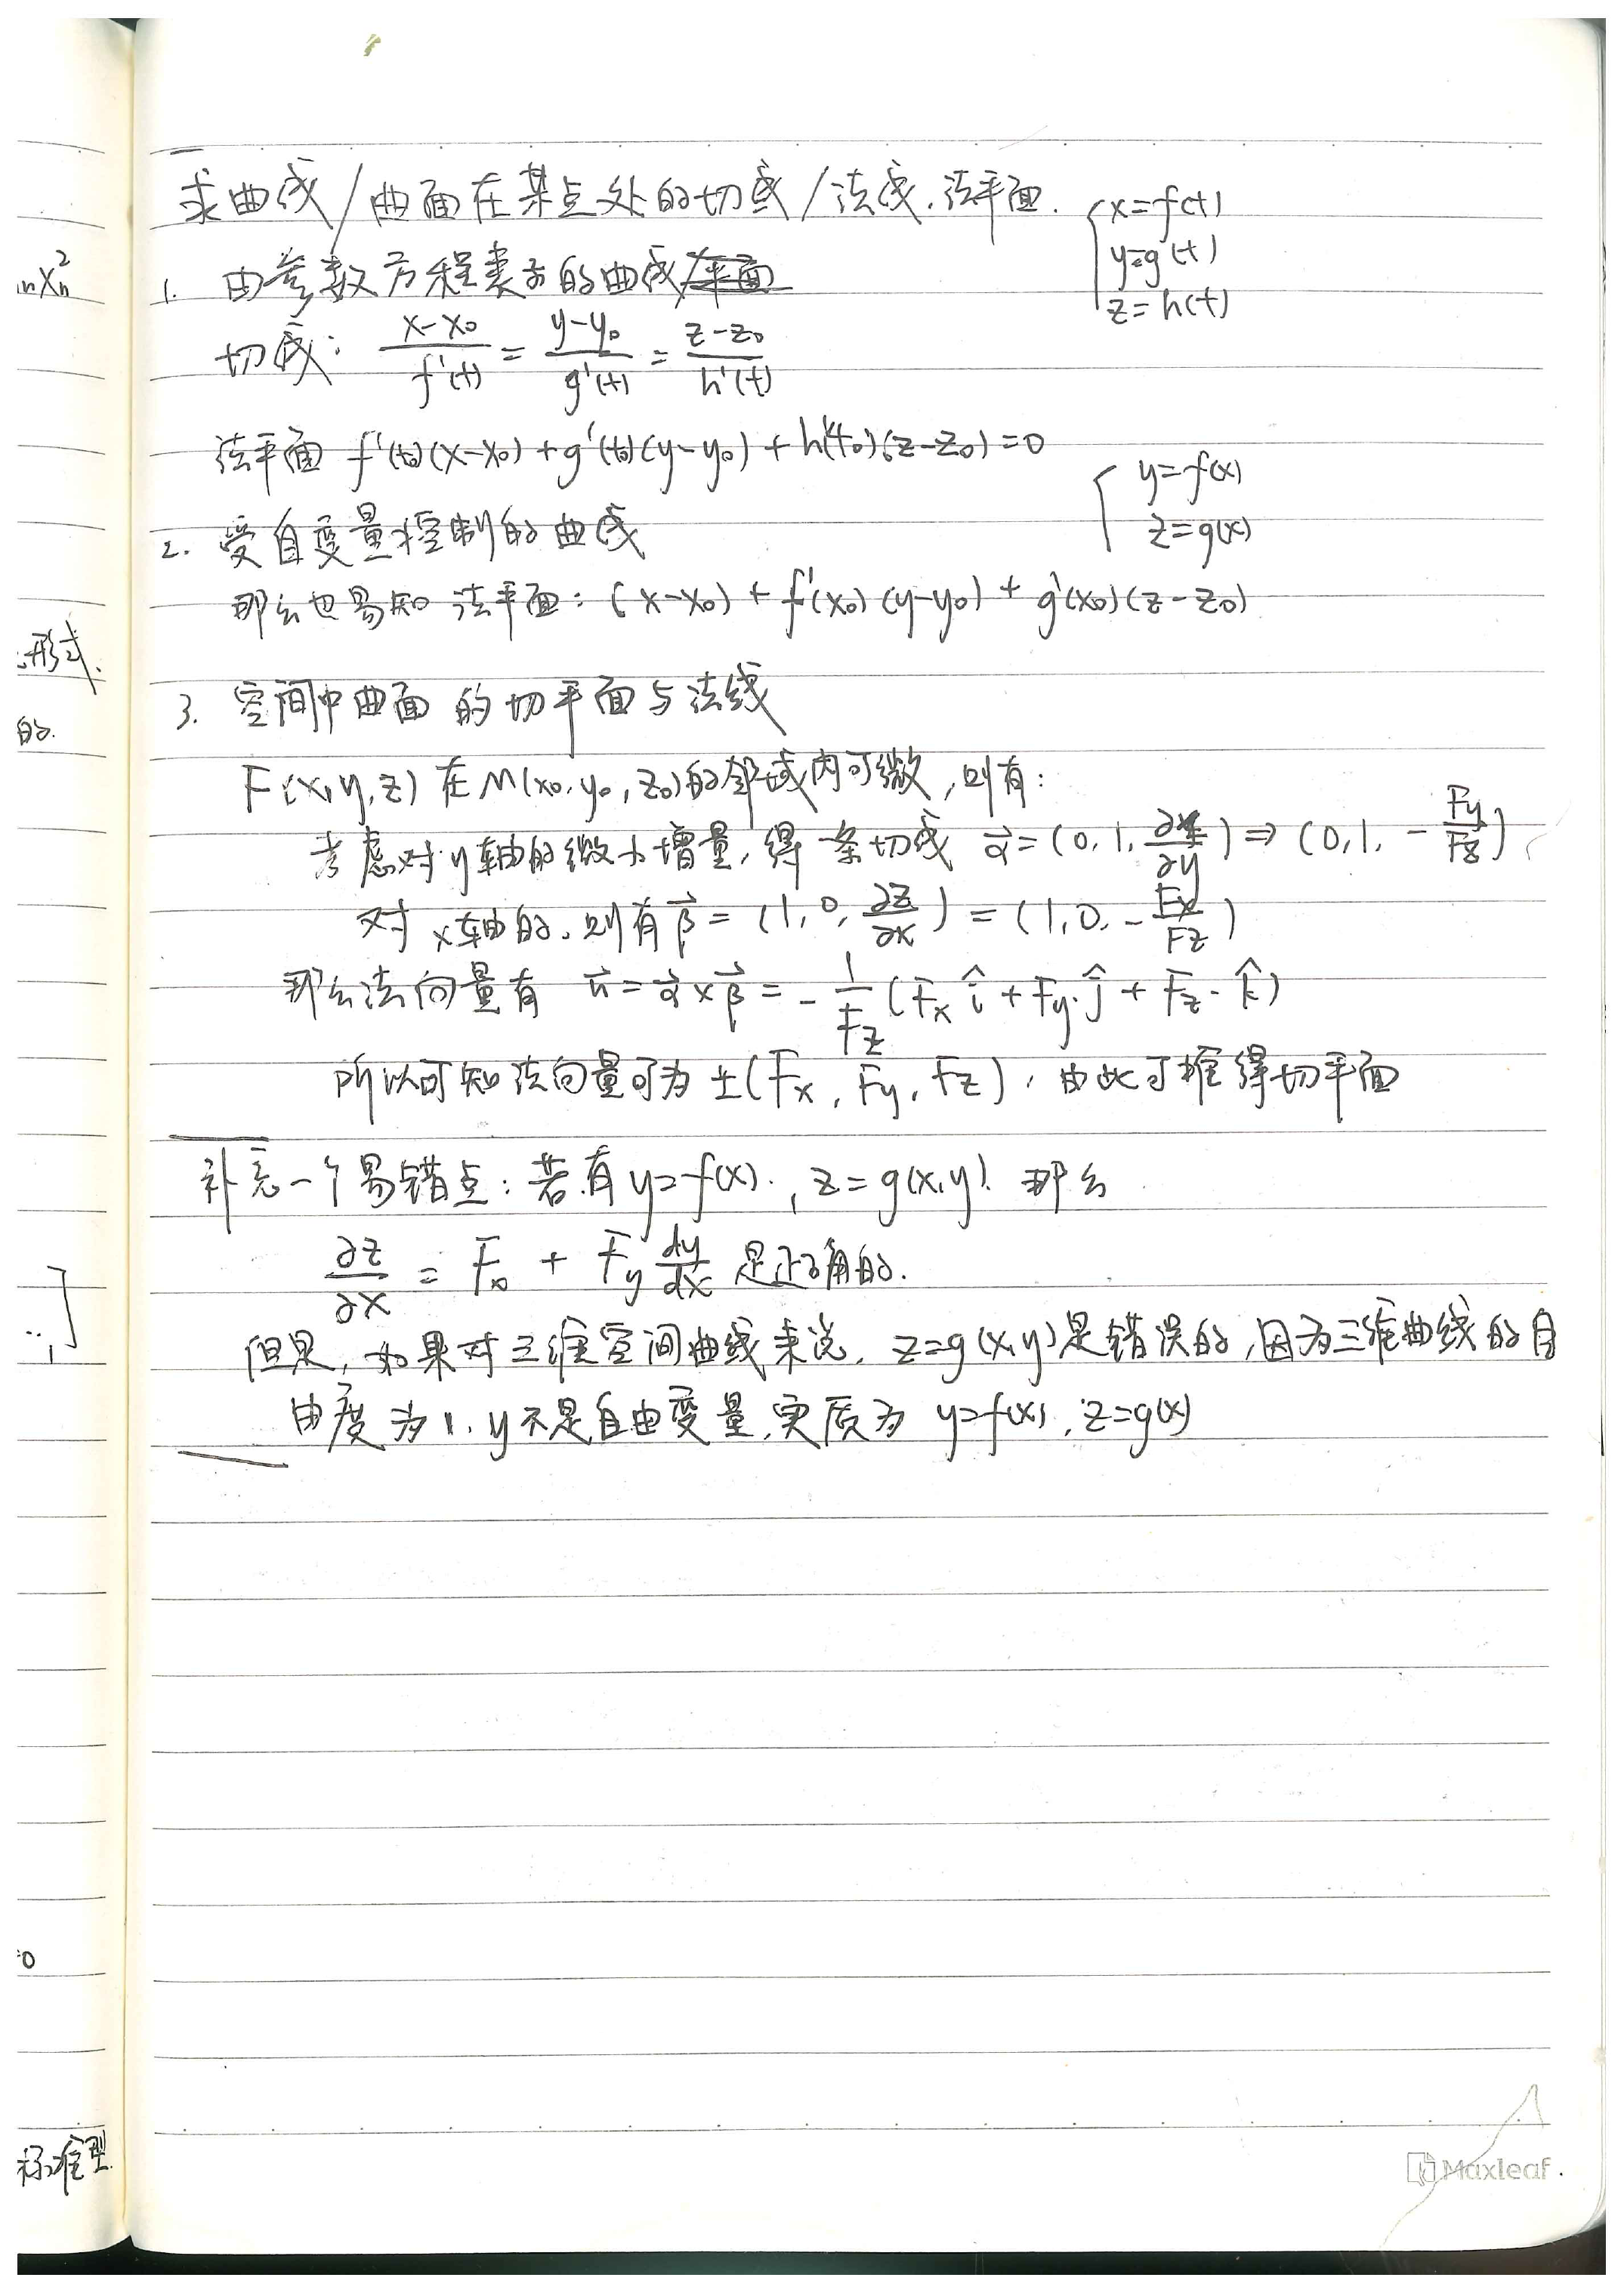 求曲线/曲面在某点处的切线/法线.法平面.
{x=f(t)
y=g(t)
z=h(t)
1. 由参数方程表示的曲线/平面
切线: (x-x₀)/f'(t) = (y-y₀)/g'(t) = (z-z₀)/h'(t)
法平面 f'(t₀)(x-x₀)+g'(t₀)(y-y₀)+h'(t₀)(z-z₀)=0
{y=f(x)
z=g(x)
2. 受自变量控制的曲线
那么也易知 法平面: (x-x₀) + f'(x₀)(y-y₀) + g'(x₀)(z-z₀)
3. 空间中曲面的切平面与法线
F(x,y,z) 在M(x₀,y₀,z₀)的邻域内可微,则有:
考虑对y轴的微小增量,得一条切线 α⃗=(0,1,∂z/∂y)⇒(0,1,-Fy/Fz)
对x轴的,则有β⃗=(1,0,∂z/∂x)=(1,0,-Fx/Fz)
那么法向量有 n⃗=α⃗×β⃗=-1/Fz(Fx î+Fy·ĵ+Fz·k̂)
所以可知法向量可为±(Fx,Fy,Fz),由此可推得切平面
补充一个易错点:若有y=f(x).,z=g(x,y) 那么
∂z/∂x = Fx + Fy dy/dx 是正确的.
但是,如果对三维空间曲线来说,z=g(x,y)是错误的,因为三维曲线的自
由度为1.y不是自由变量,实质为 y=f(x),z=g(x)
nXn²
形式.
的.
]
0
标准型
Maxleaf.